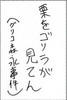 栗をゴリラが
見てん
(グリコ森永事件)